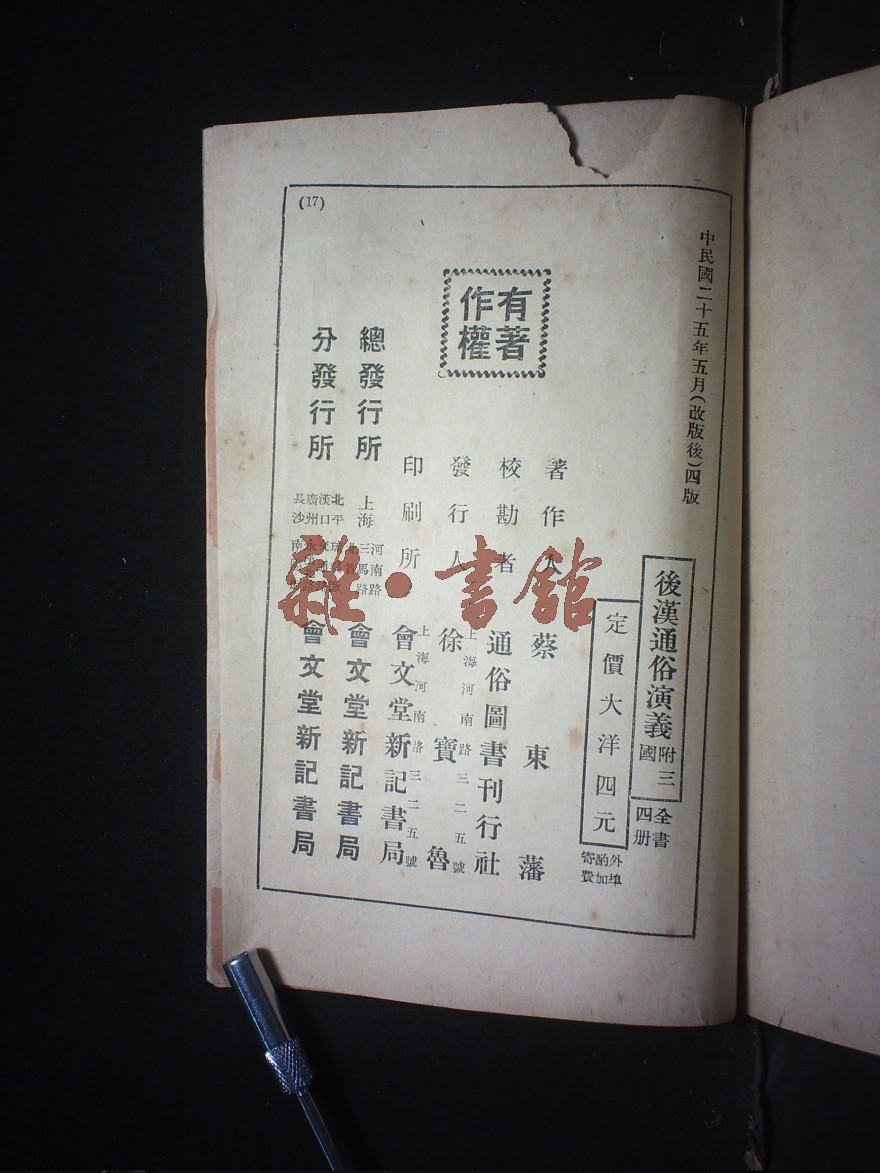 中民國二十五年五月(改版後)四版
後漢通俗演義
附三國
全書四册
定價大洋四元
外埠酌加寄費
有著作權
著作人 蔡東藩
校勘者 通俗圖書刊行社
發行人 徐寶魯
上海河南路三二五號
印刷所 會文堂新記書局
上海河南路三二五號
總發行所 上海 河南路三馬路北首 會文堂新記書局
分發行所 北平 漢口 廣州 長沙 會文堂新記書局
(17)
雜·書館